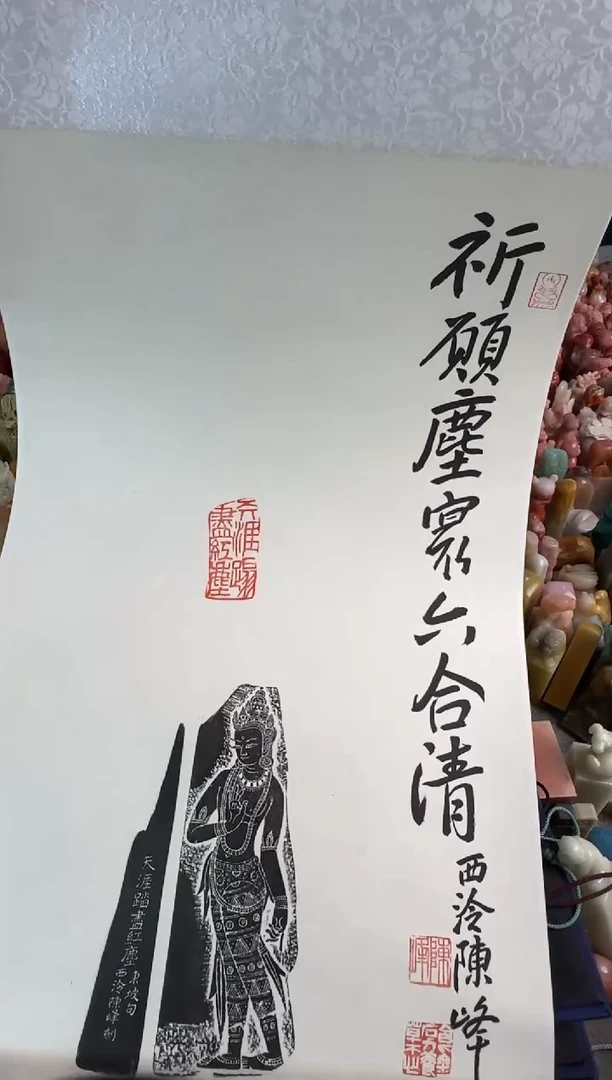 祈願塵寰六合清
西泠陳峰
天涯踏
盡紅塵
天涯踏盡紅塵
東坡句
西泠陳峰刻